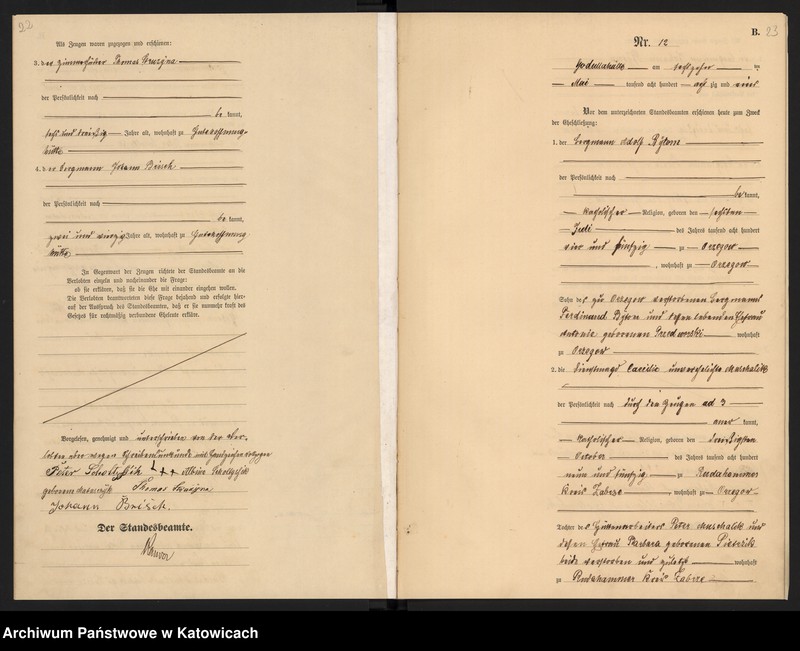 22
Als Zeugen waren zugezogen und erschienen:
3. der Zimmerhäuer Thomas
der Persönlichkeit nach
be kannt,
sechs und dreißig Jahre alt, wohnhaft zu Gutehoffnungs-
hütte
4. der Bergmann Johann Brisch
der Persönlichkeit nach
be kannt,
zwei und vierzig Jahre alt, wohnhaft zu Gutehoffnungs
hütte
In Gegenwart der Zeugen richtete der Standesbeamte an die
Verlobten einzeln und nacheinander die Frage:
ob sie erklären, daß sie die Ehe mit einander eingehen wollen.
Die Verlobten beantworteten diese Frage bejahend und erfolgte hier-
auf der Ausspruch des Standesbeamten, daß er sie nunmehr kraft des
Gesetzes für rechtmäßig verbundene Eheleute erkläre.
Vorgelesen, genehmigt und unterschrieben von der
wegen Schreibensunkunde mit Handzeichen vollzogen
Peter +++ Albine
geborene Thomas
Johann Brisch.
Der Standesbeamte.
B. 23
Nr. 12
Godullahütte am sechszehn ten
Mai tausend acht hundert acht zig und eins
Vor dem unterzeichneten Standesbeamten erschienen heute zum Zweck
der Eheschließung:
1. der Bergmann Adolf Bytom
der Persönlichkeit nach
be kannt,
katholischer Religion, geboren den sechsten
Juli des Jahres tausend acht hundert
vier und fünfzig zu Orzegow
, wohnhaft zu Orzegow
Sohn des zu Orzegow verstorbenen Bergmanns
Ferdinand Bytom und dessen lebenden Ehefrau
Antonie geborenen wohnhaft
zu Orzegow
2. die Dienstmagd Caecilie unverehelichte Maschalik
der Persönlichkeit nach durch den Zeugen ad 3
aner kannt,
katholischer Religion, geboren den dreißigsten
October des Jahres tausend acht hundert
neun und fünfzig zu Rudahammer
Kreis Zabrze, wohnhaft zu Orzegow
Tochter des Hüttenarbeiters Peter Maschalik und
dessen Ehefrau Barbara geborenen
beide verstorben und zuletzt wohnhaft
zu Rudahammer Kreis Zabrze
Archiwum Państwowe w Katowicach